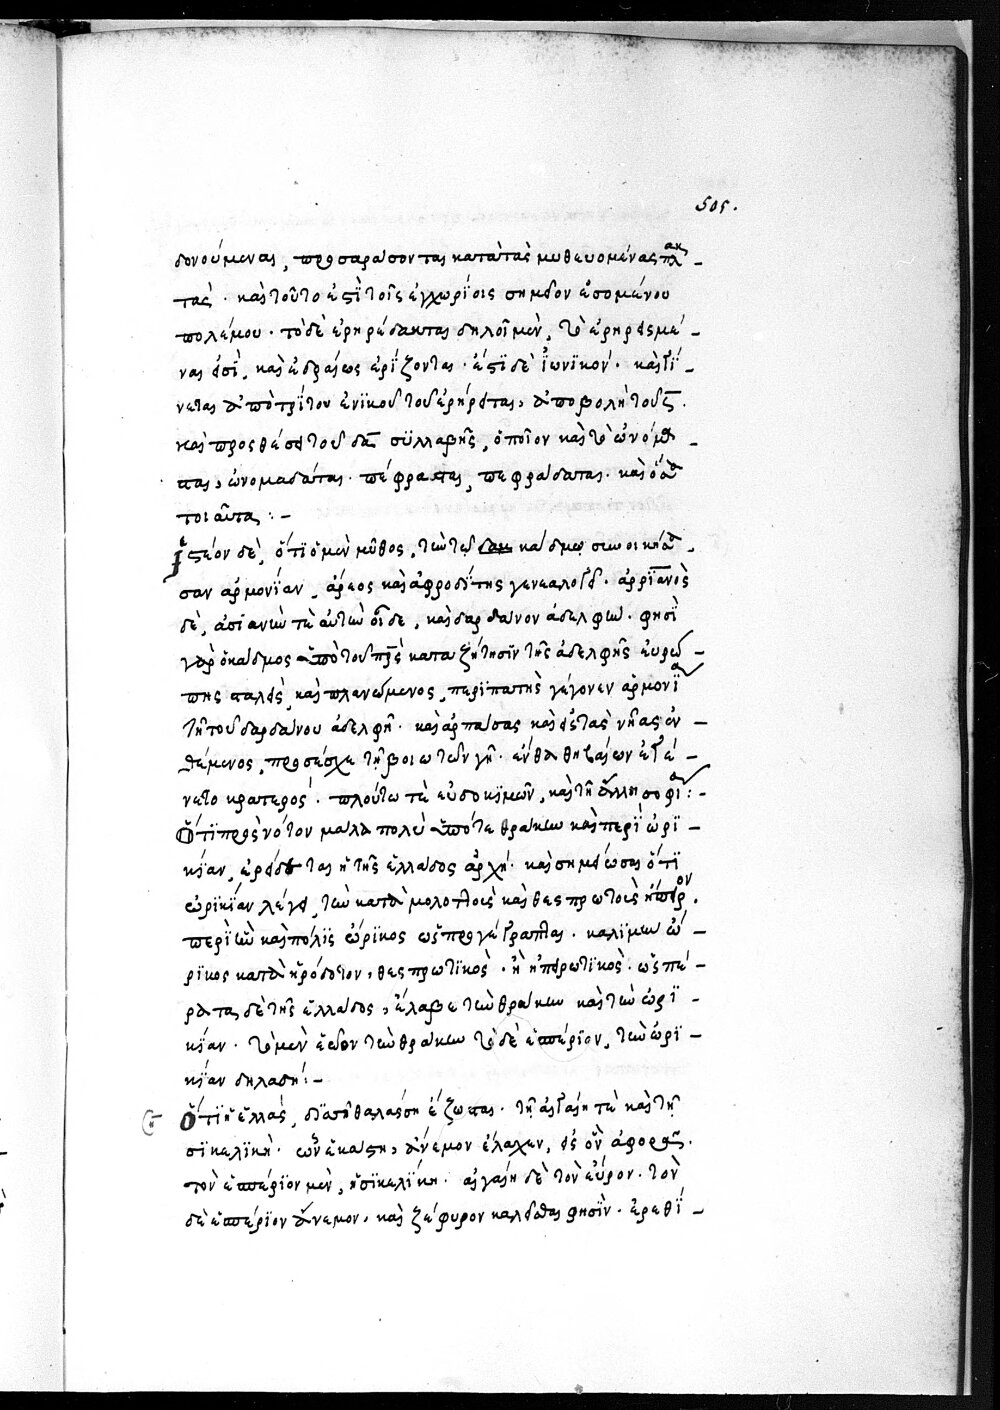 505.
δονούμεναι, προσαράσσονται κατὰ τὰς μυθευομένας πλακ –
τάς. καὶ τοῦτο ἐπὶ τοῖς ἐγχωρίοις σημεῖον ἐσομένου
πολέμου. τὸ δὲ ἐρηρέδαται δηλοῖ μὲν, τὸ ἐρηρεισμέ –
ναι εἰσὶ, καὶ ἑδραίως ἐρίζονται. ἔστι δὲ ἰωνικόν. καὶ γί –
νεται ἀπὸ τρίτου ἑνικοῦ τοῦ ἐρήρεται, ἀποβολῇ τοῦ
καὶ προσθέσει τοῦ δα συλλαβῆς, ὁποῖον καὶ τὸ ὠνόμα –
ται, ὠνομαδάται. πέφραται, πεφράδαται. καὶ ὅσα
τοιαῦτα : –
Ἰστέον δὲ, ὅτι ὁ μὲν μῦθος, τὴν τῷ κάδμῳ συνοικήσα
σαν ἁρμονίαν, ἄρεος καὶ ἀφροδίτης γενεαλογεῖ. ἀρριανὸς
δὲ, ἀσιανὴν τὲ αὐτὴν οἶδε, καὶ δαρδάνου ἀδελφήν. φησὶ
γὰρ ὁ κάδμος ἀπὸ τοῦ πρὸς κατὰ ζήτησιν τῆς ἀδελφῆς εὐρώ –
πης σταλεὶς καὶ πλανώμενος, περιπατὴς γέγονεν ἁρμονί
τῇ τοῦ δαρδάνου ἀδελφῇ. καὶ ἁρπάσας καὶ εἰς τὰς νῆας ἐν –
θέμενος, προσέσχε τῇ βοιωτῶν γῇ. ἔνθα θηβαίων ἐγέ –
νετο κρατερός. πλούτω τὲ εὐδοκιμῶν, καὶ τῇ ἄλλῃ σοφί : –
Ὅτι πρὸς νότον μάλα πολὺ ἀπό τε θράκην καὶ περὶ ὠρι –
κίαν, ἐρείδεται ἡ τῆς ἑλλάδος ἀρχή. καὶ σημείωσαι ὅτι
ὠρικίαν λέγει, τὴν κατὰ μολοττοὺς καὶ θεσπρωτοὺς ἤπειρον.
περὶ ὧν καὶ πόλις ὤρικος ὡς προγέγραπται. καὶ λιμὴν ὤ –
ρικος κατὰ ἡρόδοτον, θεσπρωτικὸς. ἢ ἠπειρωτικὸς. ὡς πέ –
ρατα δὲ τῆς ἑλλάδος, ἔλαβε τὴν θράκην καὶ τὴν ὠρι –
κίαν. τὸ μὲν ἑῶον τὴν θράκην τὸ δὲ ἑσπέριον, τὴν ὠρι
κίαν δηλαδή : –
Ὅτι ἡ ἑλλὰς, δισσῇ θαλάσσῃ ἔζωσται. τῇ αἰγαίῃ τὲ καὶ τῇ
σικελικῇ. ὧν ἑκάστη, ἄνεμον ἔλαχεν, εἰς ὃν ἀφορᾷ.
τὸν ἑσπέριον μὲν, ἡ σικελική. αἰγαίη δὲ τὸν εὖρον. τὸν
δὲ ἑσπέριον ἄνεμον, καὶ ζέφυρον καλεῖσθαι φησὶν. ἐρεθί –